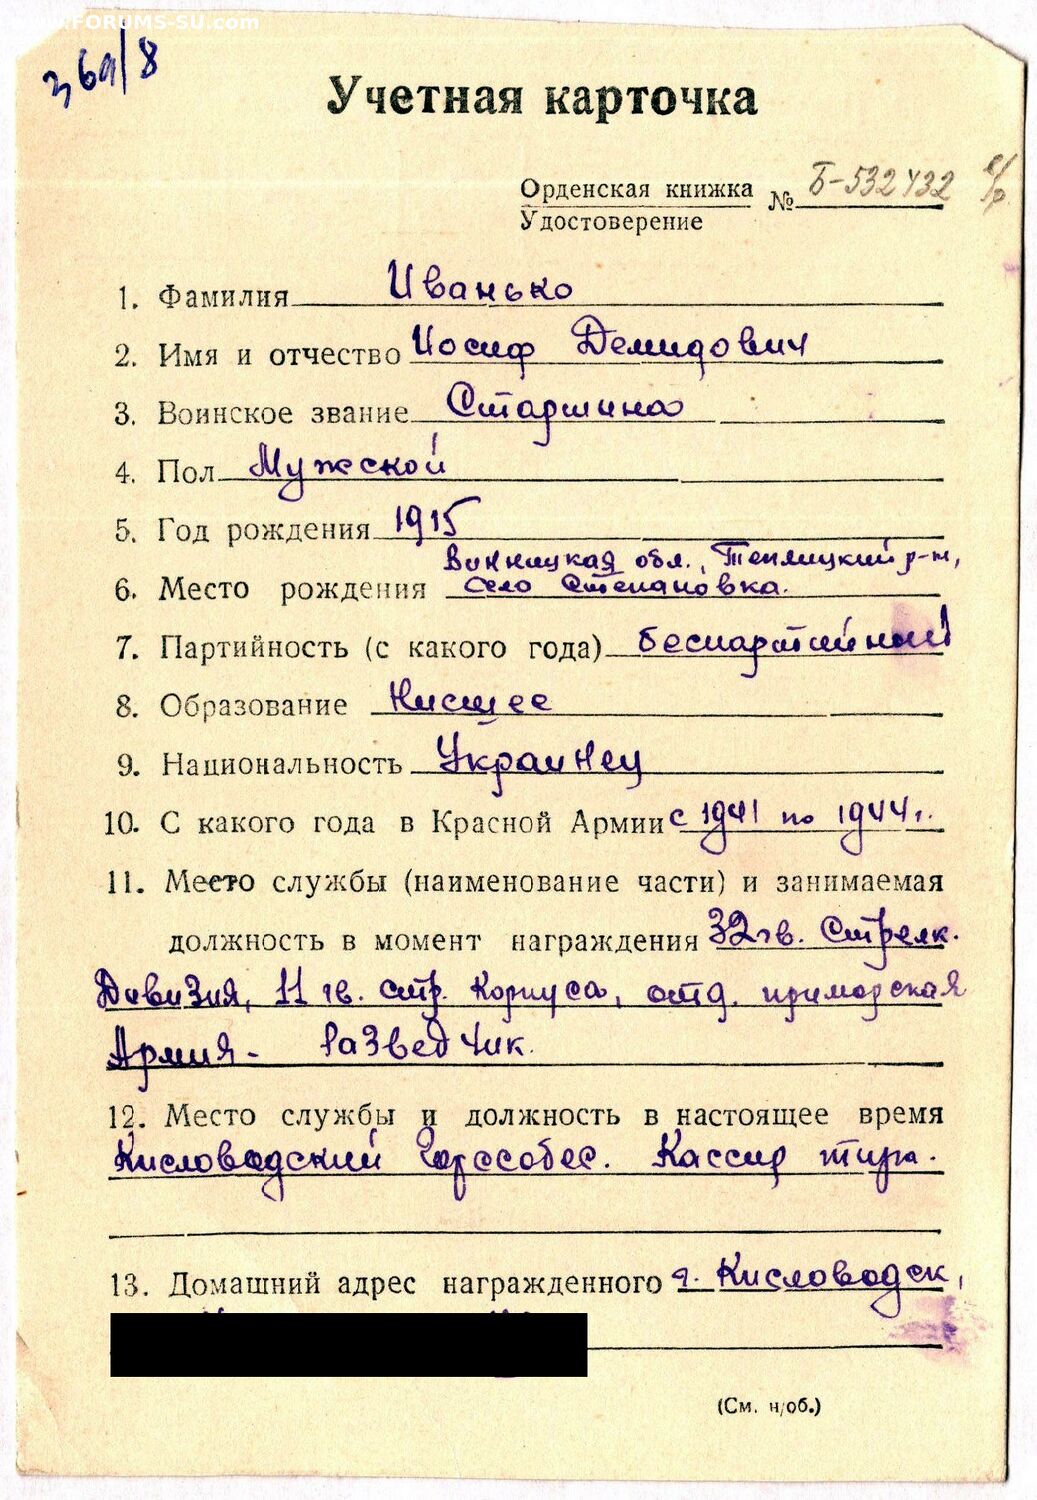 FORUMS-SU.com
Учетная карточка
Орденская книжка
Удостоверение
№ Б-532432
1. Фамилия Иванько
2. Имя и отчество Иосиф Демидович
3. Воинское звание Старшина
4. Пол Мужской
5. Год рождения 1915
Винницкая обл., Теплицкий р-н,
6. Место рождения село Степановка.
7. Партийность (с какого года) беспартийный
8. Образование Нисшее
9. Национальность Украинец
10. С какого года в Красной Армии с 1941 по 1944 г.
11. Место службы (наименование части) и занимаемая
должность в момент награждения 32 гв. Стрелк.
Дивизия, 11 гв. стр. Корпуса, отд. приморская
Армия - Разведчик.
12. Место службы и должность в настоящее время
Кисловодский Горссобес. Кассир тира.
13. Домашний адрес награжденного г. Кисловодск,
(См. н/об.)